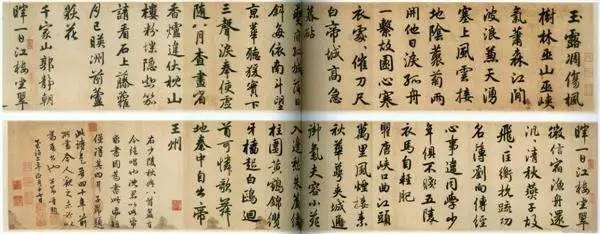 玉露凋傷楓
樹林巫山巫峽
氣蕭森江間
波浪兼天湧
塞上風雲接
地陰叢菊兩
開他日淚孤舟
一繫故園心寒
衣處〻催刀尺
白帝城高急
暮砧
斜每依南斗望
京華聽猿實下
三聲淚奉使虛
隨八月查畫省
香爐違伏枕山
樓粉堞隱悲笳
請看石上藤蘿
月已暎洲前蘆
荻花
千家山郭靜朝
暉一日江樓坐翠
暉一日江樓坐翠
微信宿漁舟還
汎〻清秋燕子故
飛〻匡衡抗疏功
名薄劉向傳經
心事違同學少
年俱不賤五陵
衣馬自輕肥
瞿唐峽口曲江頭
萬里風煙接素
秋華萼夾城通
御氣夫容小苑
入邊愁朱簾繡
柱圍黃鵠錦纜
牙檣起白鷗迴
首可憐歌舞
地秦中自古帝
王州
右少陵秋興八首盖古
今絕唱也
此詩是吾四十年前
所書今人觀之未必以
為吾書也